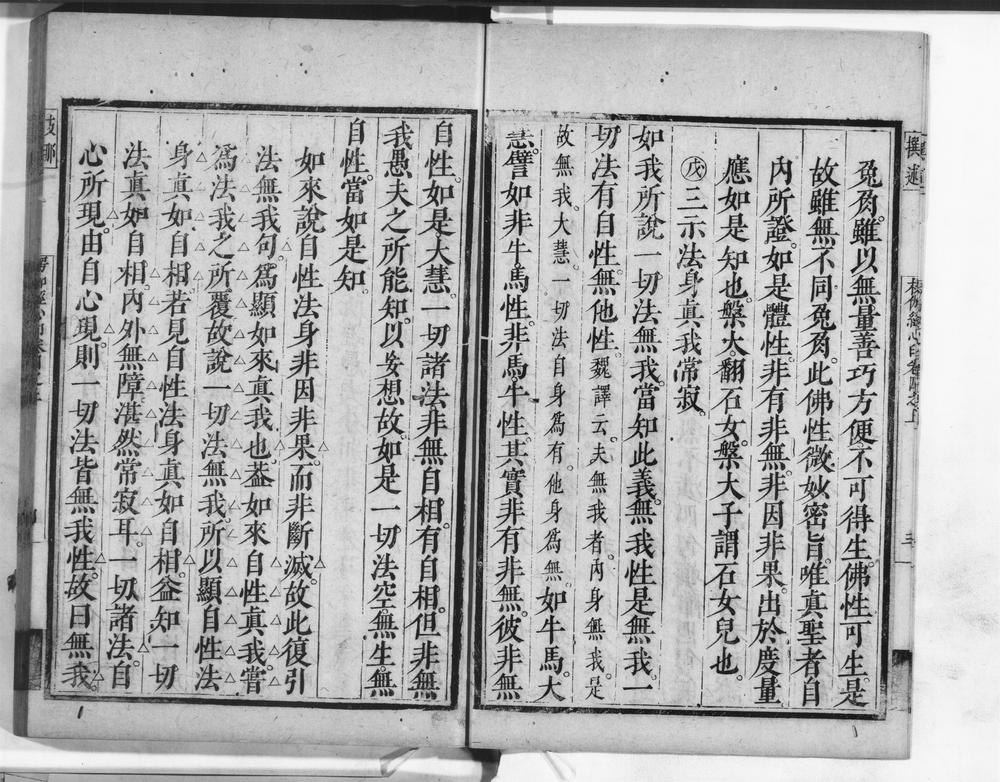 兔角。雖以無量善巧方便。不可得生。佛性可生。是
故雖無。不同兔角。此佛性微妙密旨。唯真聖者自
內所證。如是體性。非有非無。非因非果。出於度量
應如是知也。槃大。翻石女。槃大子。謂石女兒也。
戊三示法身真我常寂。
如我所說。一切法無我。當知此義。無我性是無我。一
切法有自性。無他性。魏譯云。夫無我者。內身無我。是
故無我。大慧。一切法自身為有。他身為無。如牛馬。大
慧。譬如非牛馬性。非馬牛性。其實非有非無。彼非無
自性。如是大慧。一切諸法。非無自相。有自相。但非無
我愚夫之所能知。以妄想故。如是一切法空。無生。無
自性。當如是知。
如來說自性法身。非因非果。而非斷滅。故此復引
法無我句。為顯如來真我也。葢如來自性真我。嘗
為法我之所覆。故說一切法無我。所以顯自性法
身真如自相。若見自性法身真如自相。益知一切
法真如自相。內外無障。湛然常寂耳。一切諸法。自
心所現。由自心現。則一切法皆無我性。故曰無我。
撰述